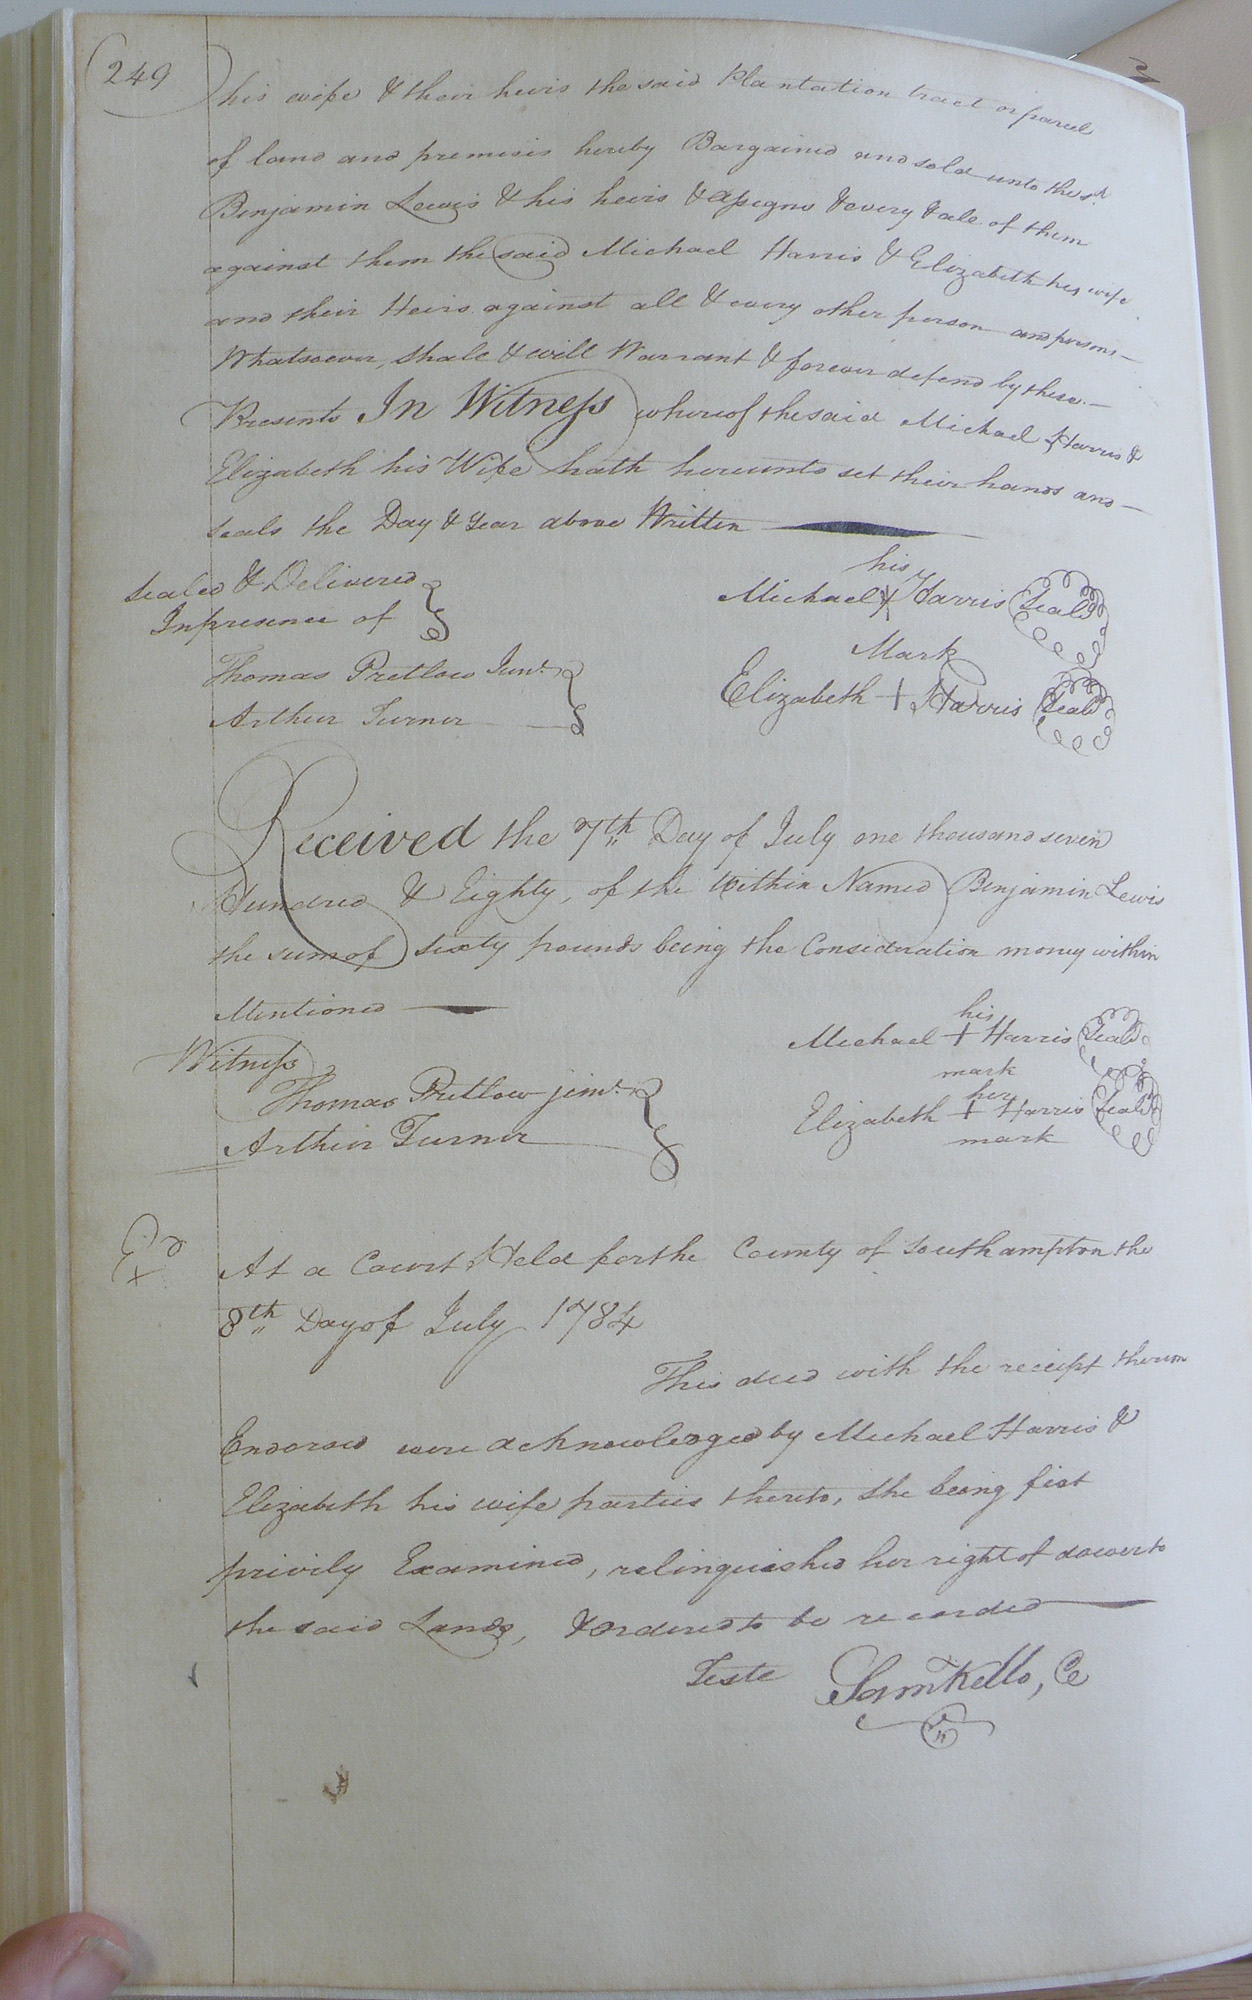 249
his wife & their heirs the said Plantation tract or parcel
of land and premises hereby Bargained and sold unto the sd.
Benjamin Lewis & his heirs & assigns & every & all of them
against them the said Michael Harris & Elizabeth his wife
and their Heirs against all & every other person and persons—
Whatsoever, shall & will Warrant & forever defend by these.—
Presents In Witness whereof the said Michael Harris &
Elizabeth his Wife hath hereunto set their hands and—
seals the Day & Year above Written
his
Sealed & Delivered
Michael + Harris Seal
In presence of
Mark
Thomas Pretlow Junr.
Elizabeth + Harris Seal
Arthur Turner
Received the 7th Day of July one thousand seven
Hundred & Eighty, of the Within Named Benjamin Lewis
the sum of Sixty pounds being the Consideration money within
Mentioned
his
Witness
Michael + Harris Seal
mark
Thomas Pretlow junr.
her
Elizabeth + Harris Seal
Arthur Turner
mark
At a Court Held for the County of Southampton the
8th Day of July 1784
This deed with the receipt thereon
Endorsed were acknowledged by Michael Harris &
Elizabeth his wife parties thereto, she being fist
privily Examined, relinquished her right of dower to
the said Lands, & ordered to be recorded
Teste Saml Kello, Cc